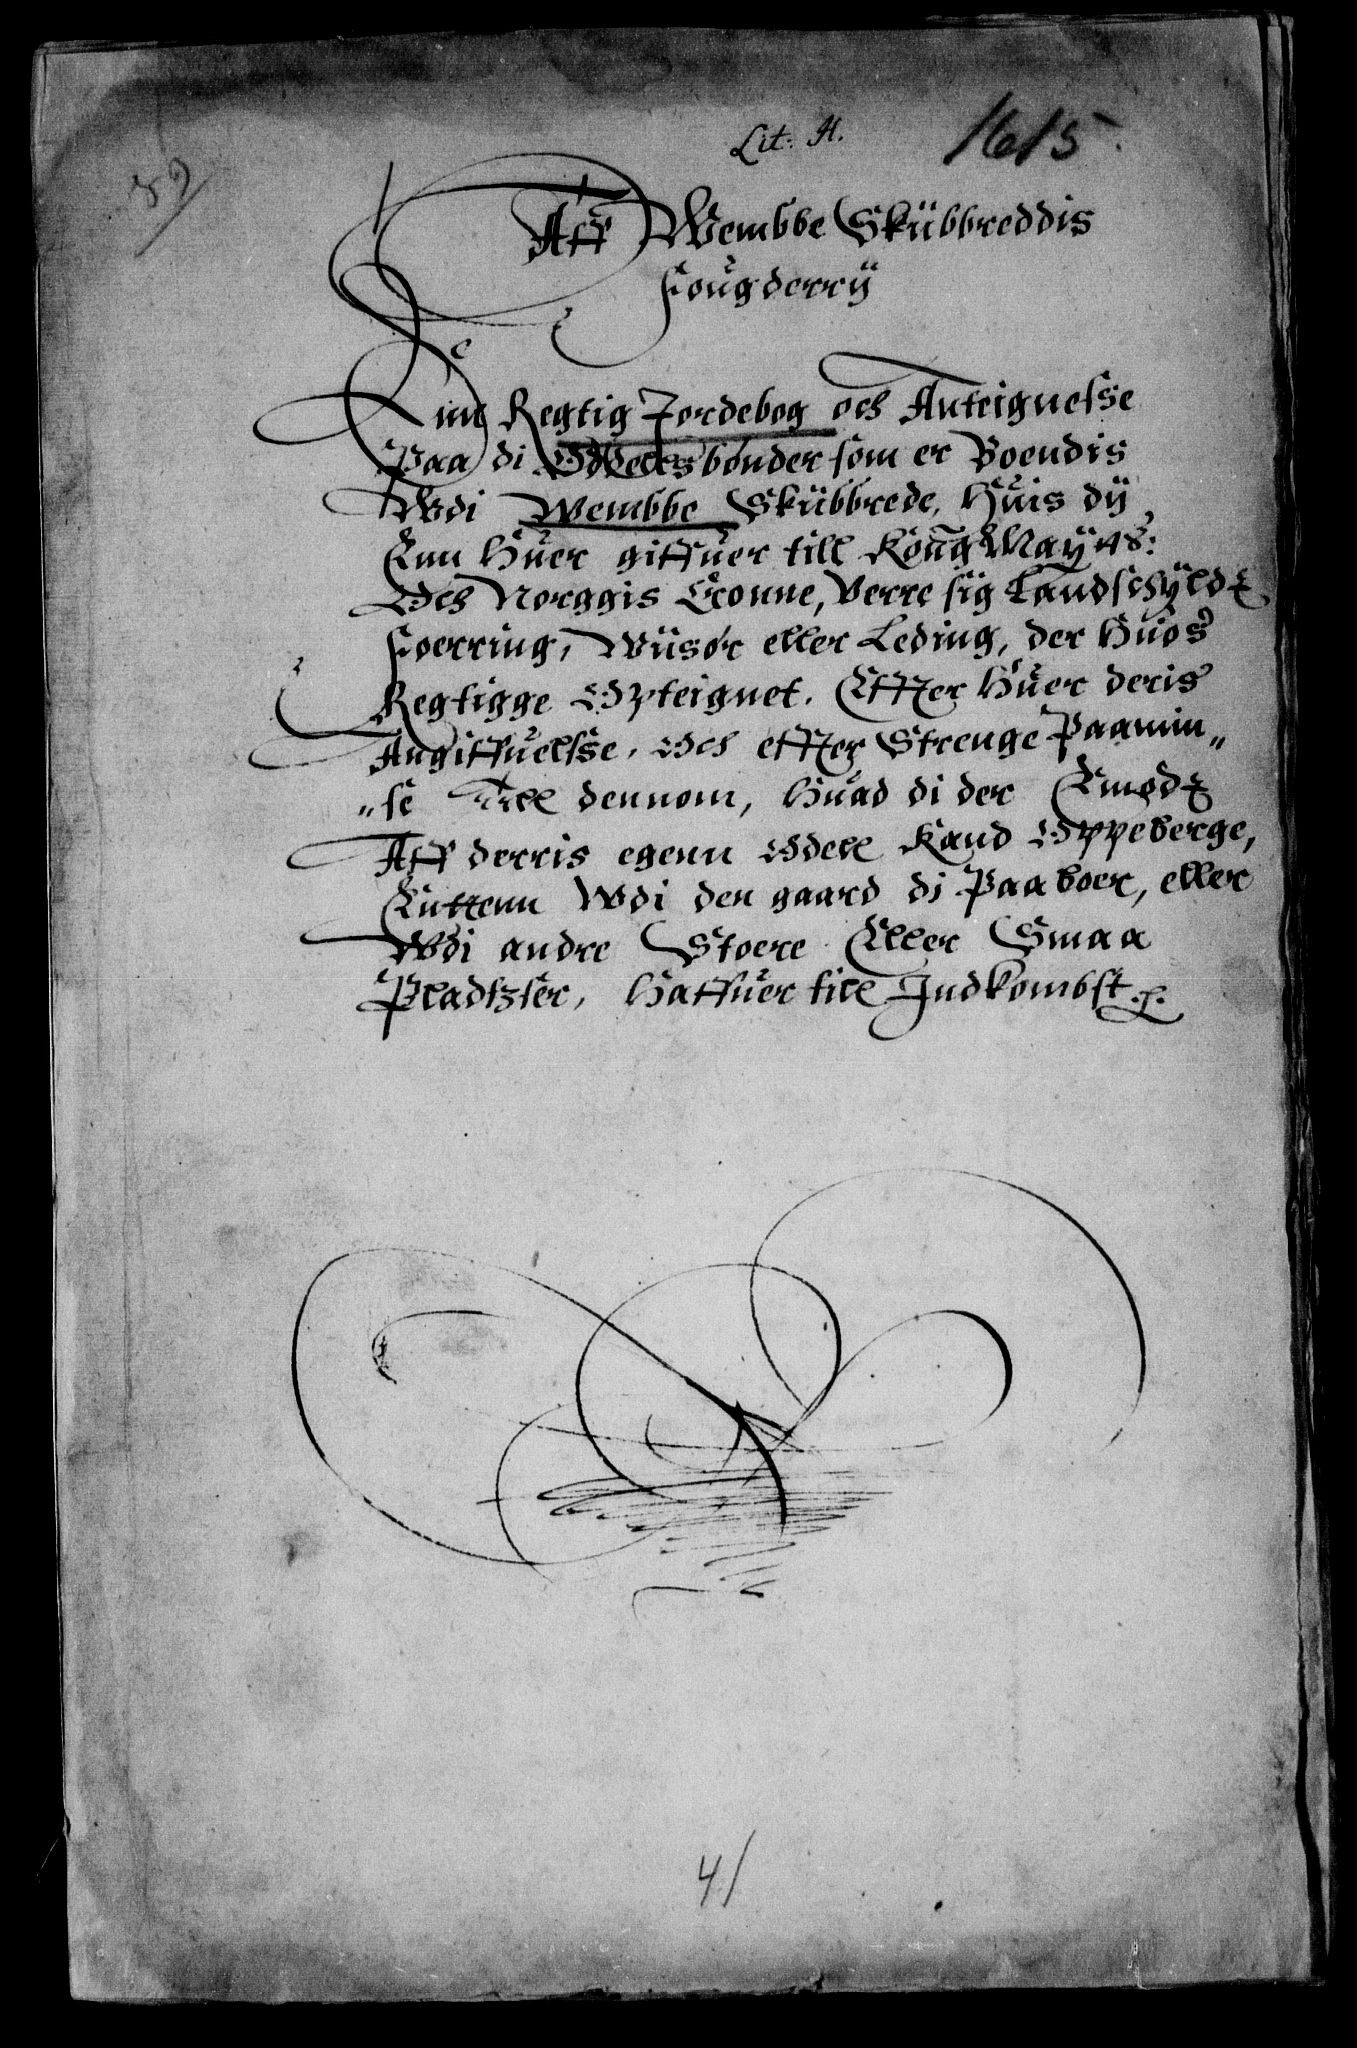 Lit: H.
1615.
52
Aff Wembbe Skübbreddis
Fougderrÿ
Enn Regtig Jordebog och Anteignelse
Paa di Odelsbønder som er Boendis
Wdi Wembbe Skübbrede, Huis dÿ
Enn Huer giffuer till Kong Maÿtt:
Och Norggis Cronne, Verre sig Landschÿld
Foerring, Wiisør eller Leding, der Huos
Regtigge Opteignet. Effter Huer deris
Angiffuelsse, Och effter Strenge Paamin„
„se Till dennom, Huad di der Emod
Aff derris egenn Odell Kand Oppeberge,
Enttenn Wdi den gaard di Paaboer, eller
Wdi andre Stoere Eller Smaa
Pladtzser, Haffuer till Indkombst
41